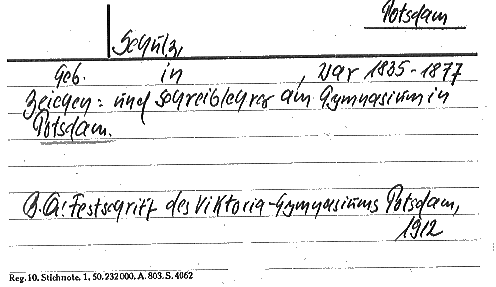 Potsdam
Schütz,
Geb. in , War 1835-1877
Zeichen= und Schreiblehrer am Gymnasium in
Potsdam.
B.A: Festschrift des Viktoria-Gymnasiums Potsdam,
1912
Reg. 10. Stichnote. 1, 50. 232000. A. 803. S. 4062